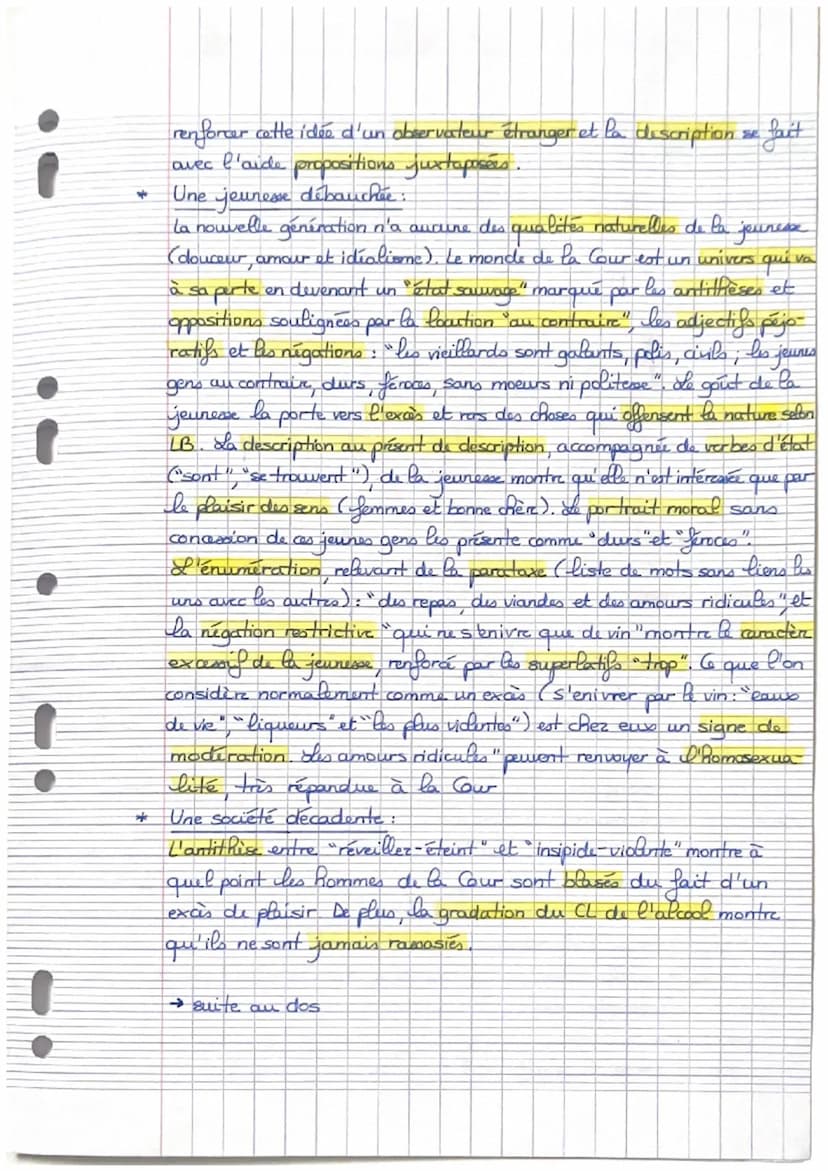 renforcer cette idée d'un observateur étranger et la description se fait
avec l'aide propositions juxtaposées.
* Une jeunesse débauchée :
La nouvelle génération n'a aucune des qualités naturelles de la jeunesse
(douceur, amour et idéalisme). Le monde de la Cour est un univers qui va
à sa perte en devenant un "état sauvage" marqué par les antithèses et
oppositions soulignées par la locution "au contraire", les adjectifs péjo-
ratifs et les négations : "les vieillards sont galants, polis, civils ; les jeunes
gens au contraire, durs, féroces, sans moeurs ni politesse". Le goût de la
jeunesse la porte vers l'excès et vers des choses qui offensent la nature selon
LB. La description au présent de description, accompagnée de verbes d'état
("sont", "se trouvent"), de la jeunesse montre qu'elle n'est intéressée que par
le plaisir des sens (femmes et bonne chère). Le portrait moral sans
concession de ces jeunes gens les présente comme "durs" et "féroces".
L'énumération, relevant de la parataxe (liste de mots sans liens les
uns avec les autres) : "des repas, des viandes et des amours ridicules", et
la négation restrictive "qui ne s'enivre que de vin" montre le caractère
excessif de la jeunesse, renforcé par les superlatifs "trop". Ce que l'on
considère normalement comme un excès (s'enivrer par le vin : "eaux
de vie", "liqueurs" et "les plus violentes") est chez eux un signe de
modération. Les amours ridicules" peuvent renvoyer à l'homosexua-
lité, très répandue à la Cour
* Une société décadente :
L'antithèse entre "réveiller-éteint" et "insipide-violente" montre à
quel point les hommes de la Cour sont blasés du fait d'un
excès de plaisir. De plus, la gradation du CL de l'alcool montre
qu'ils ne sont jamais rassasiés.
→ suite au dos